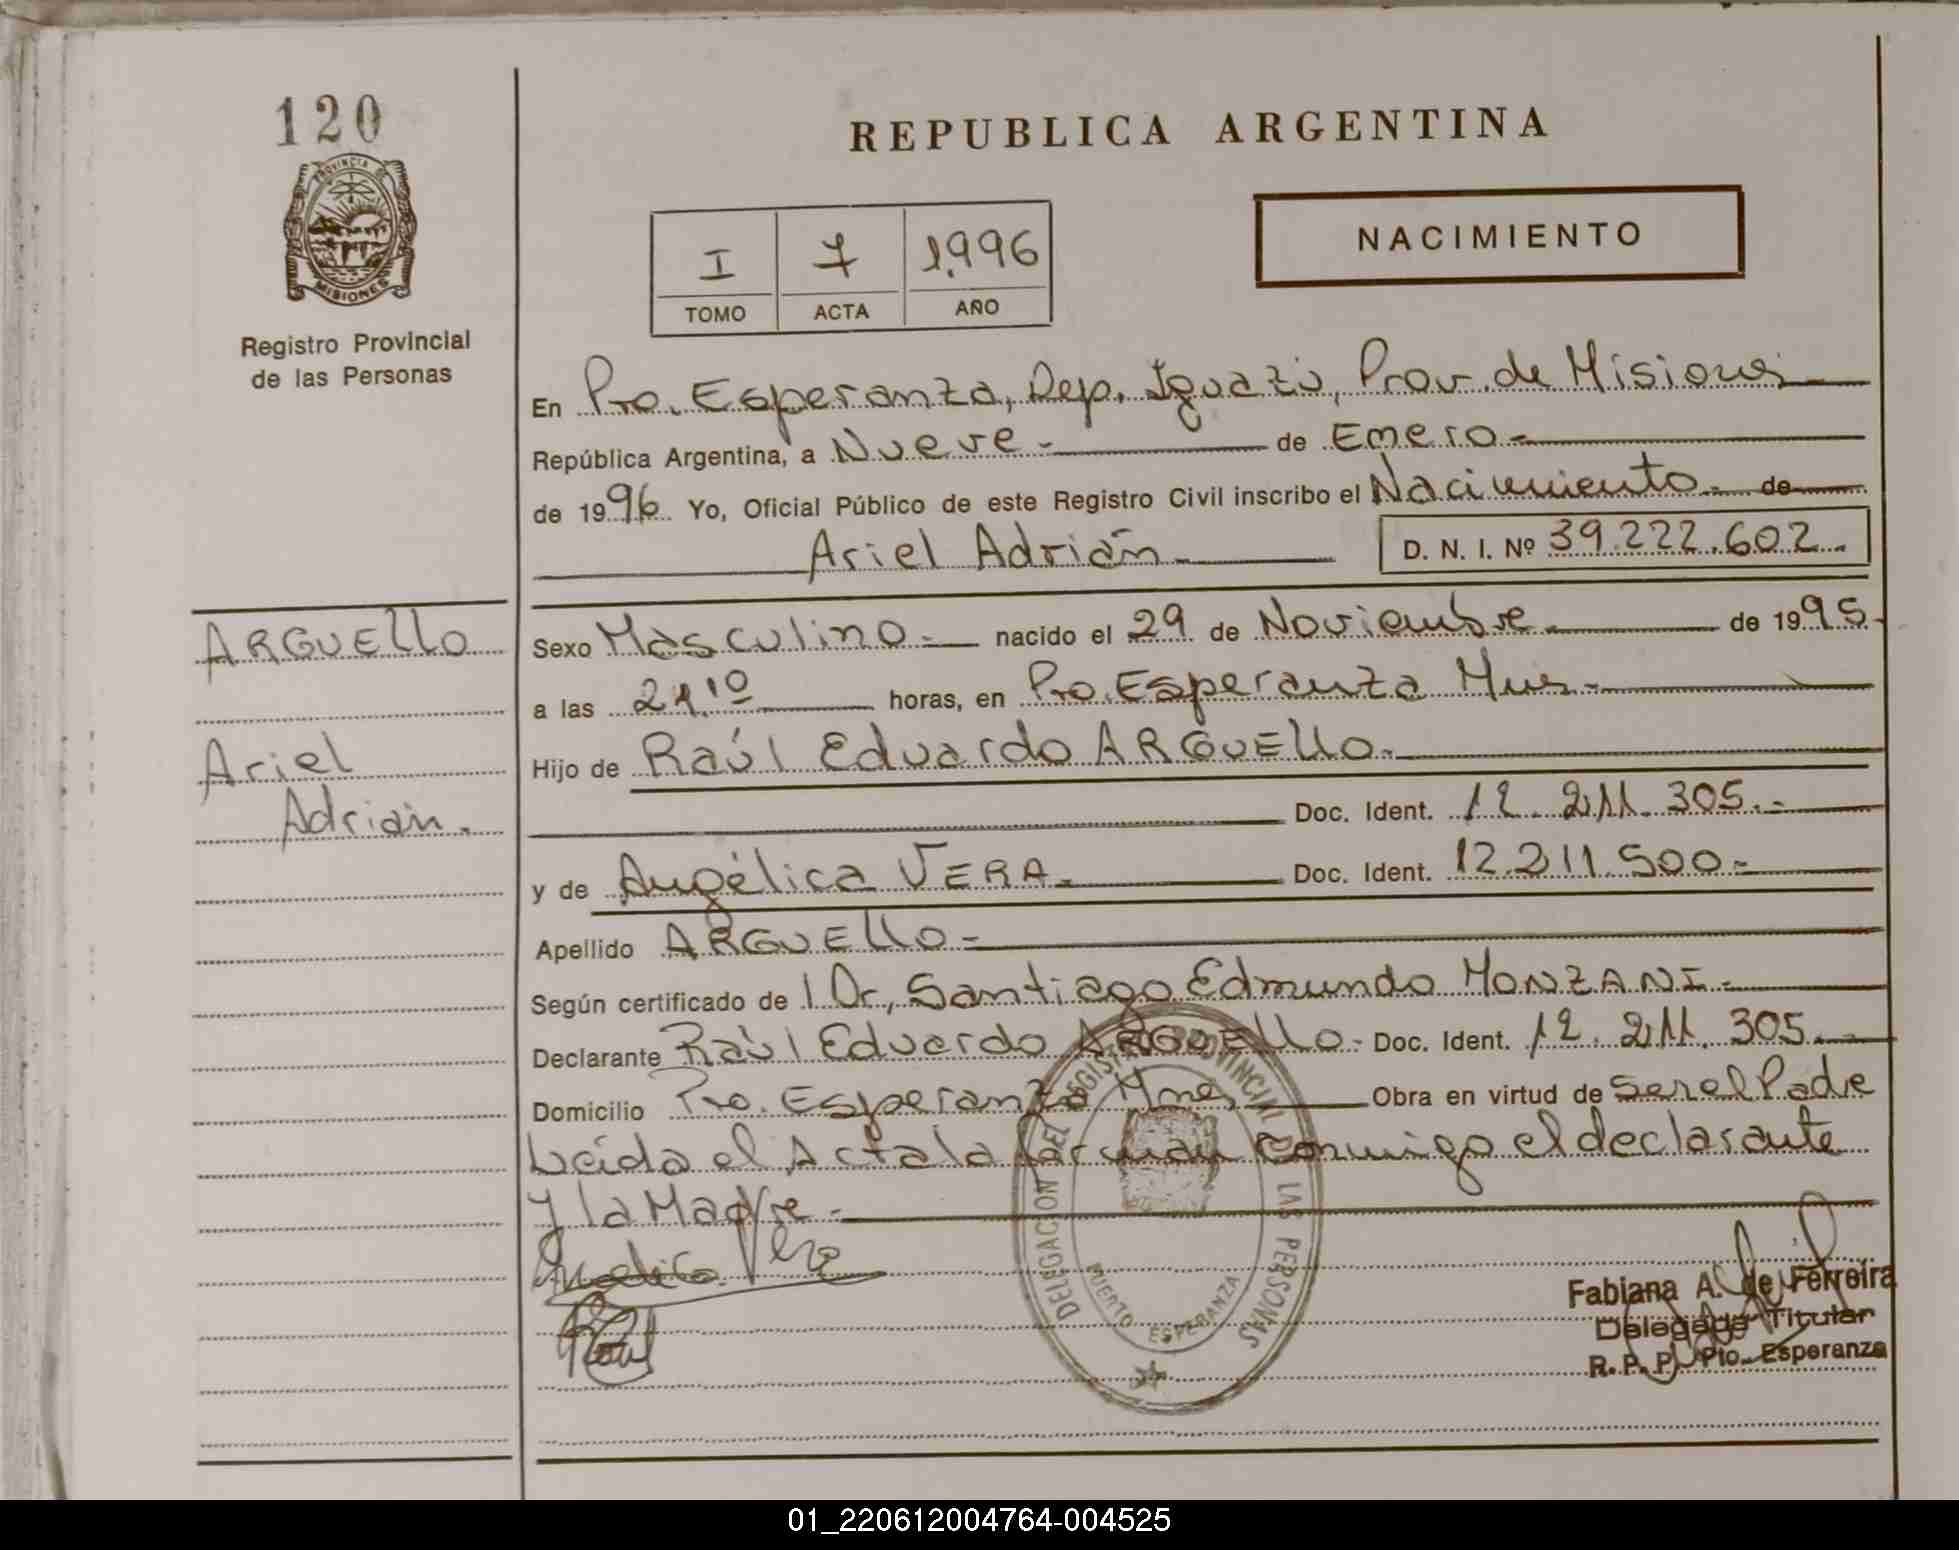 120
PROVINCIA DE
MISIONES
Registro Provincial
de las Personas
REPUBLICA ARGENTINA
I 7 1.996
TOMO ACTA AÑO
NACIMIENTO
En Pto. Esperanza, Dep. Iguazú, Prov. de Misiones
República Argentina, a Nueve.- de Enero.-
de 1996. Yo, Oficial Público de este Registro Civil inscribo el Nacimiento.- de
Ariel Adrián.- D. N. I. Nº 39.222.602.-
ARGUELLO
Ariel
Adrián.
Sexo Masculino.- nacido el 29 de Noviembre.- de 1995.-
a las 21,10 horas, en Pto. Esperanza Mnes.-
Hijo de Raúl Eduardo ARGUELLO.-
Doc. Ident. 12.211.305.-
y de Angélica VERA.- Doc. Ident. 12.211.500.-
Apellido ARGUELLO.-
Según certificado de l Dr, Santiago Edmundo MONZANI.-
Declarante Raúl Eduardo ARGUELLO.- Doc. Ident. 12.211.305.-
Domicilio Pto. Esperanza Mnes Obra en virtud de Ser el Padre
Leída el Acta la firman conmigo el declarante
y la Madre.-
Angelica Vera
DELEGACION DEL REGISTRO PROVINCIAL DE LAS PERSONAS
PUERTO ESPERANZA
Fabiana A. de Ferreira
Delegada Titular
R. P. P. Pto. Esperanza
01_220612004764-004525